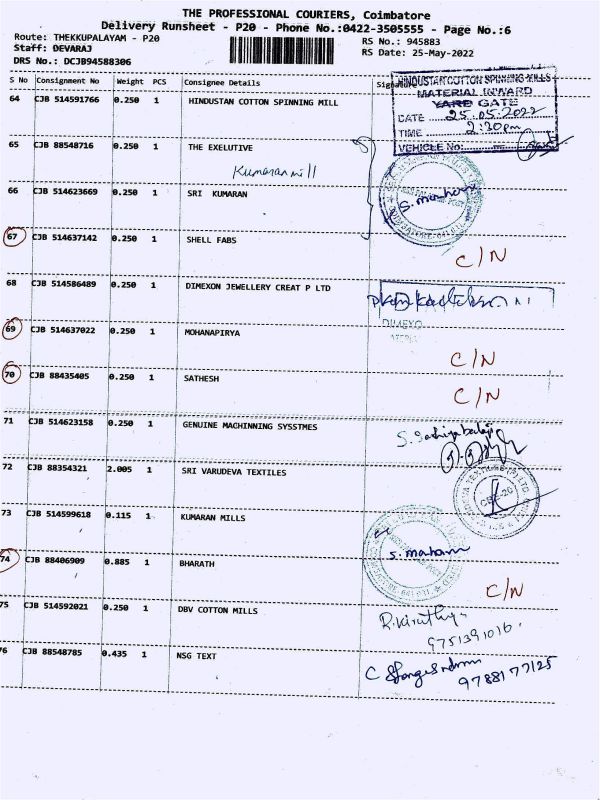 THE PROFESSIONAL COURIERS, Coimbatore
Delivery Runsheet - P20 - Phone No.:0422-3505555 - Page No.:6
Route: THEKKUPALAYAM - P20
RS No.: 945883
Staff: DEVARAJ
RS Date: 25-May-2022
DRS No.: DCJB94588306
S No Consignment No Weight PCS Consignee Details Signature
HINDUSTAN COTTON SPINNING MILLS
MATERIAL INWARD
YARD GATE
DATE 25.05.2022
TIME 2:30pm
VEHICLE No:
64 CJB 514591766 0.250 1 HINDUSTAN COTTON SPINNING MILL
65 CJB 88548716 0.250 1 THE EXELUTIVE
Kumaran mill
66 CJB 514623669 0.250 1 SRI KUMARAN
67 CJB 514637142 0.250 1 SHELL FABS
C/N
68 CJB 514586489 0.250 1 DIMEXON JEWELLERY CREAT P LTD
69 CJB 514637022 0.250 1 MOHANAPIRYA
C/N
70 CJB 88435405 0.250 1 SATHESH
C/N
71 CJB 514623158 0.250 1 GENUINE MACHINNING SYSSTMES
72 CJB 88354321 2.005 1 SRI VARUDEVA TEXTILES
CBE-29
73 CJB 514599618 0.115 1 KUMARAN MILLS
74 CJB 88406909 0.885 1 BHARATH
C/N
75 CJB 514592021 0.250 1 DBV COTTON MILLS
9751391016.
76 CJB 88548785 0.435 1 NSG TEXT
9788177125